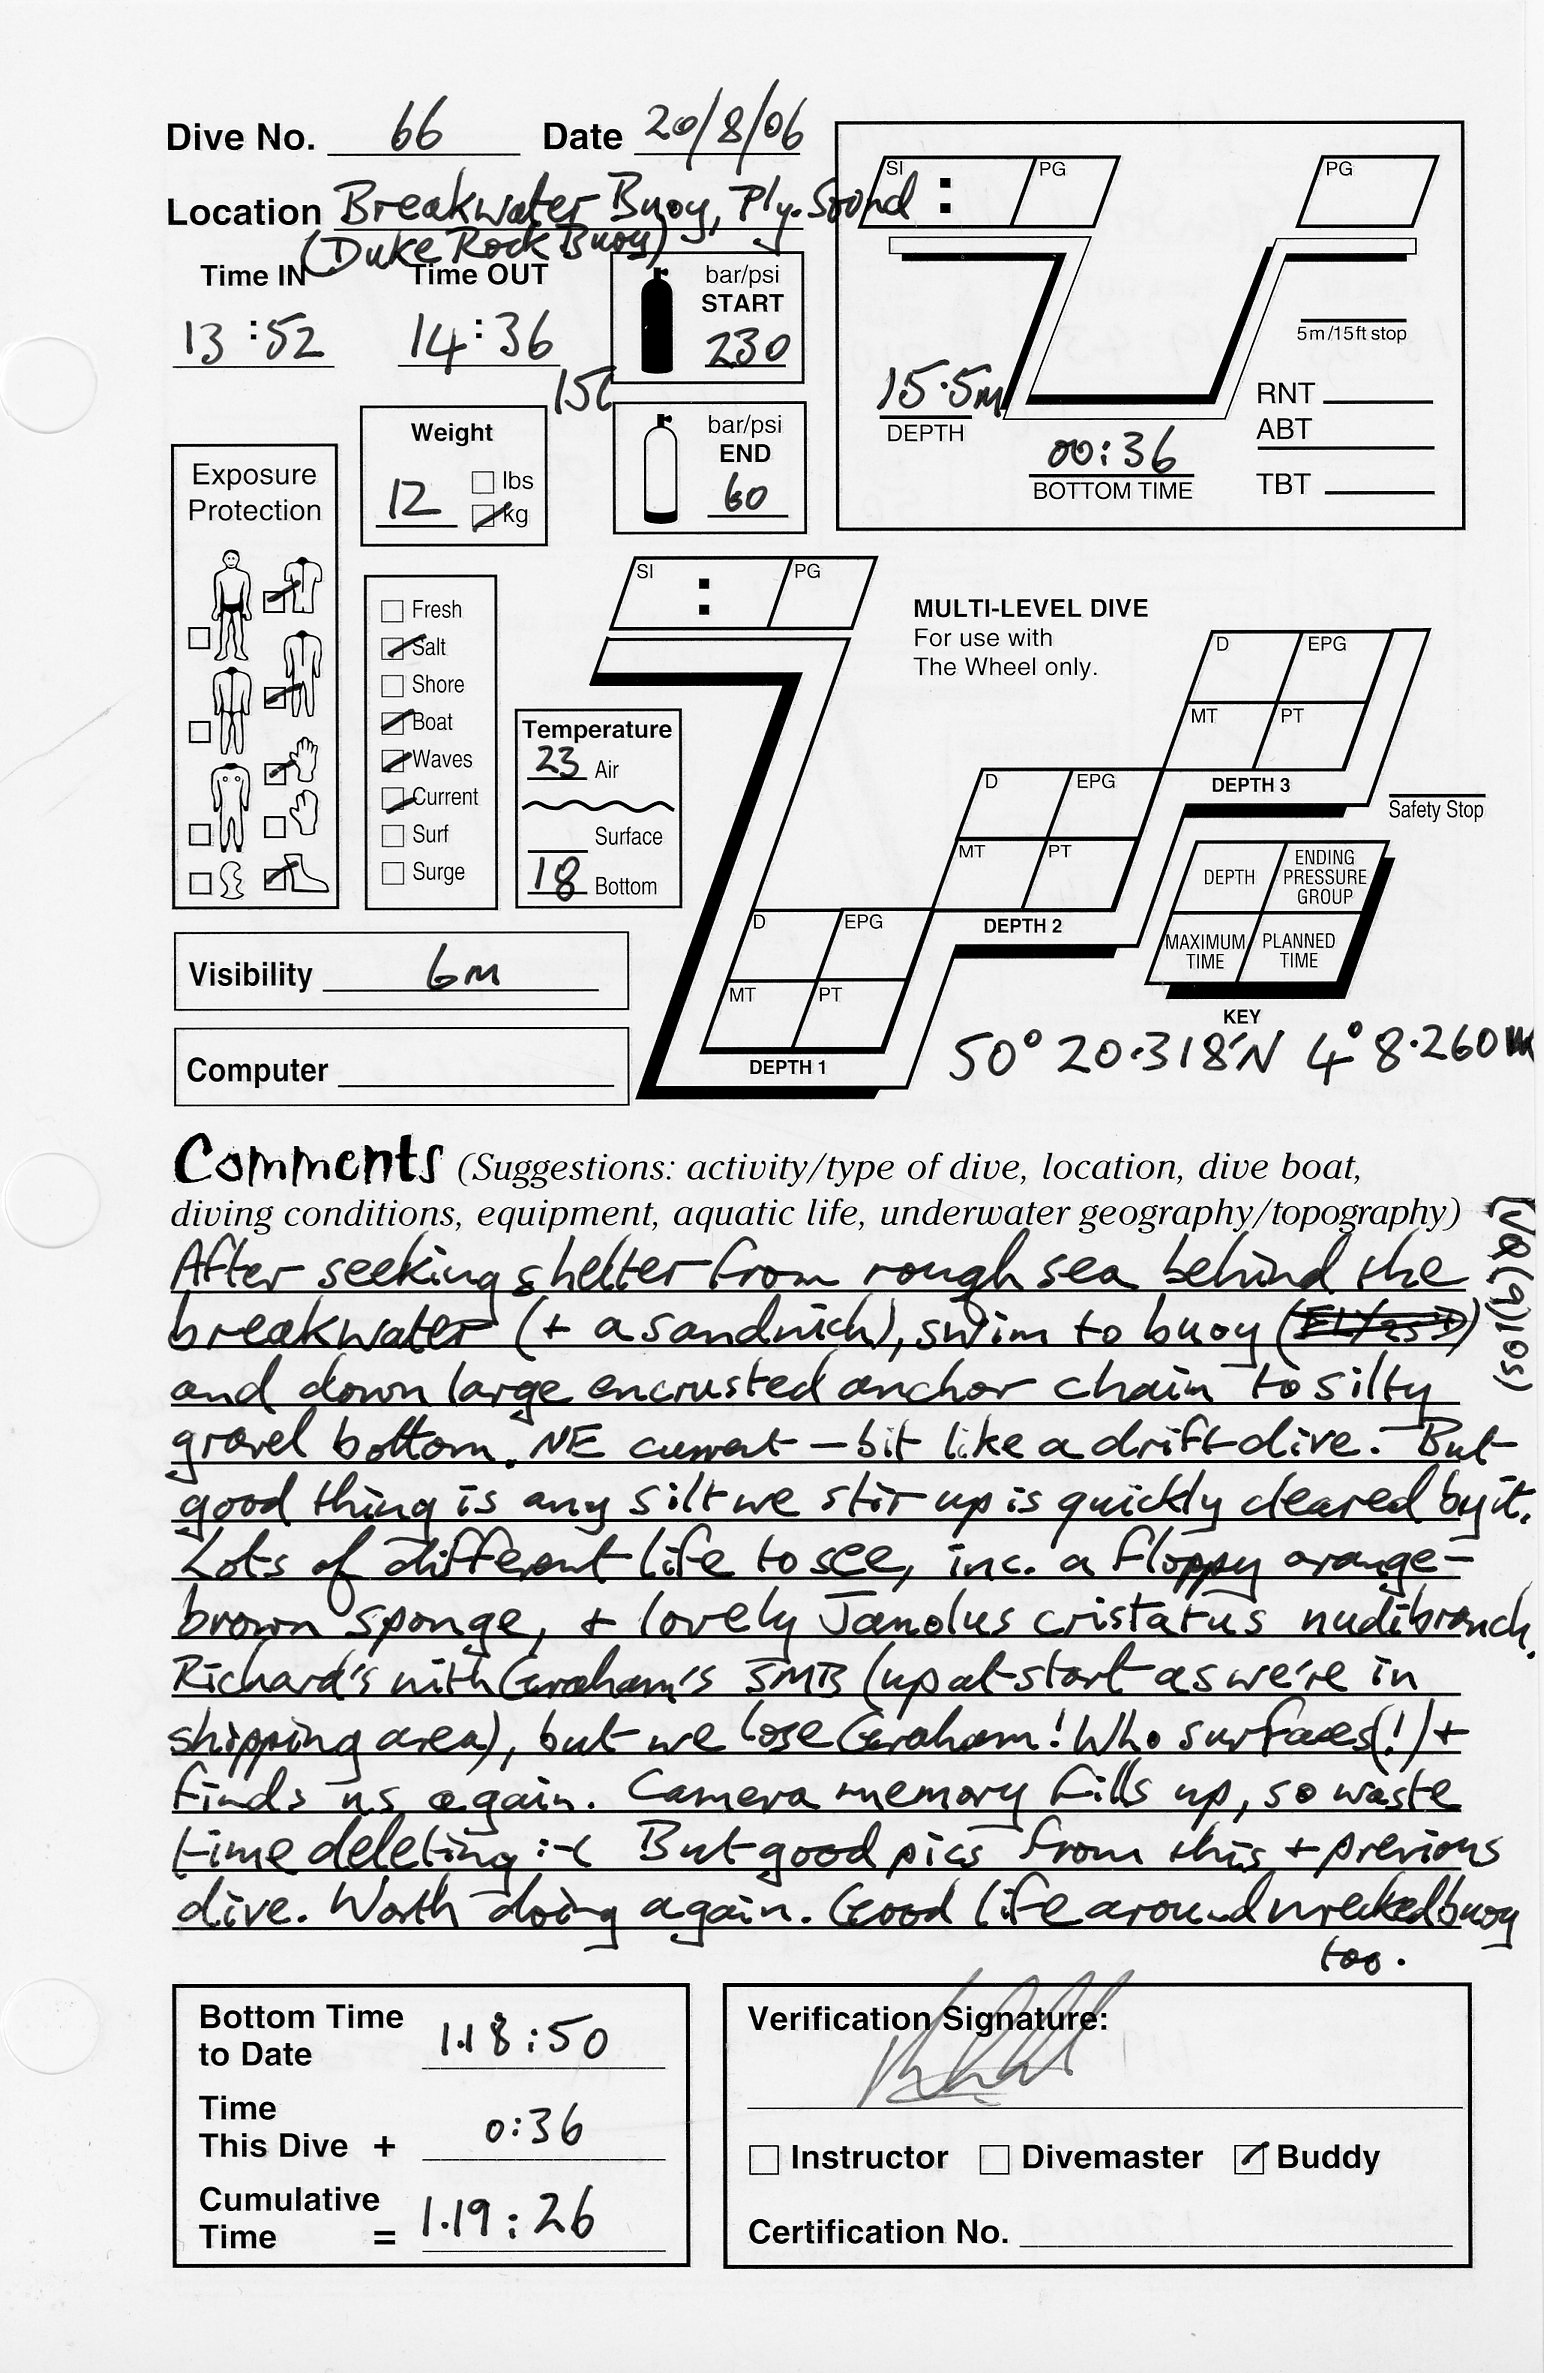 Dive No. 66 Date 20/8/06
Location Breakwater Buoy, Ply. Sound
(Duke Rock Buoy)
Time IN Time OUT
13:52 14:36
15l
bar/psi
START
230
bar/psi
END
60
SI : PG
PG
5m/15ft stop
15.5m
DEPTH
00:36
BOTTOM TIME
RNT
ABT
TBT
Weight
12 lbs
kg
Exposure
Protection
Fresh
Salt
Shore
Boat
Waves
Current
Surf
Surge
Temperature
23 Air
Surface
18 Bottom
Visibility 6m
Computer
SI : PG
MULTI-LEVEL DIVE
For use with
The Wheel only.
D EPG
MT PT
DEPTH 1
D EPG
MT PT
DEPTH 2
D EPG
MT PT
DEPTH 3
Safety Stop
DEPTH ENDING PRESSURE GROUP
MAXIMUM TIME PLANNED TIME
KEY
50° 20.318'N 4° 8.260
Comments (Suggestions: activity/type of dive, location, dive boat,
diving conditions, equipment, aquatic life, underwater geography/topography)
After seeking shelter from rough sea behind the
breakwater (+ a sandwich), swim to buoy
and down large encrusted anchor chain to silty
gravel bottom. NE current – bit like a drift dive. But
good thing is any silt we stir up is quickly cleared by it.
Lots of different life to see, inc. a floppy orange-
brown sponge, + lovely Janolus cristatus nudibranch.
Richard's with Graham's SMB (up at start as we're in
shipping area), but we lose Graham! Who surfaces(!) +
finds us again. Camera memory fills up, so waste
time deleting :-( But good pics from this + previous
dive. Worth doing again. Good life around wrecked buoy
too.
Bottom Time
to Date 1.18:50
Time
This Dive + 0:36
Cumulative
Time = 1.19:26
Verification Signature:
Instructor Divemaster Buddy
Certification No.